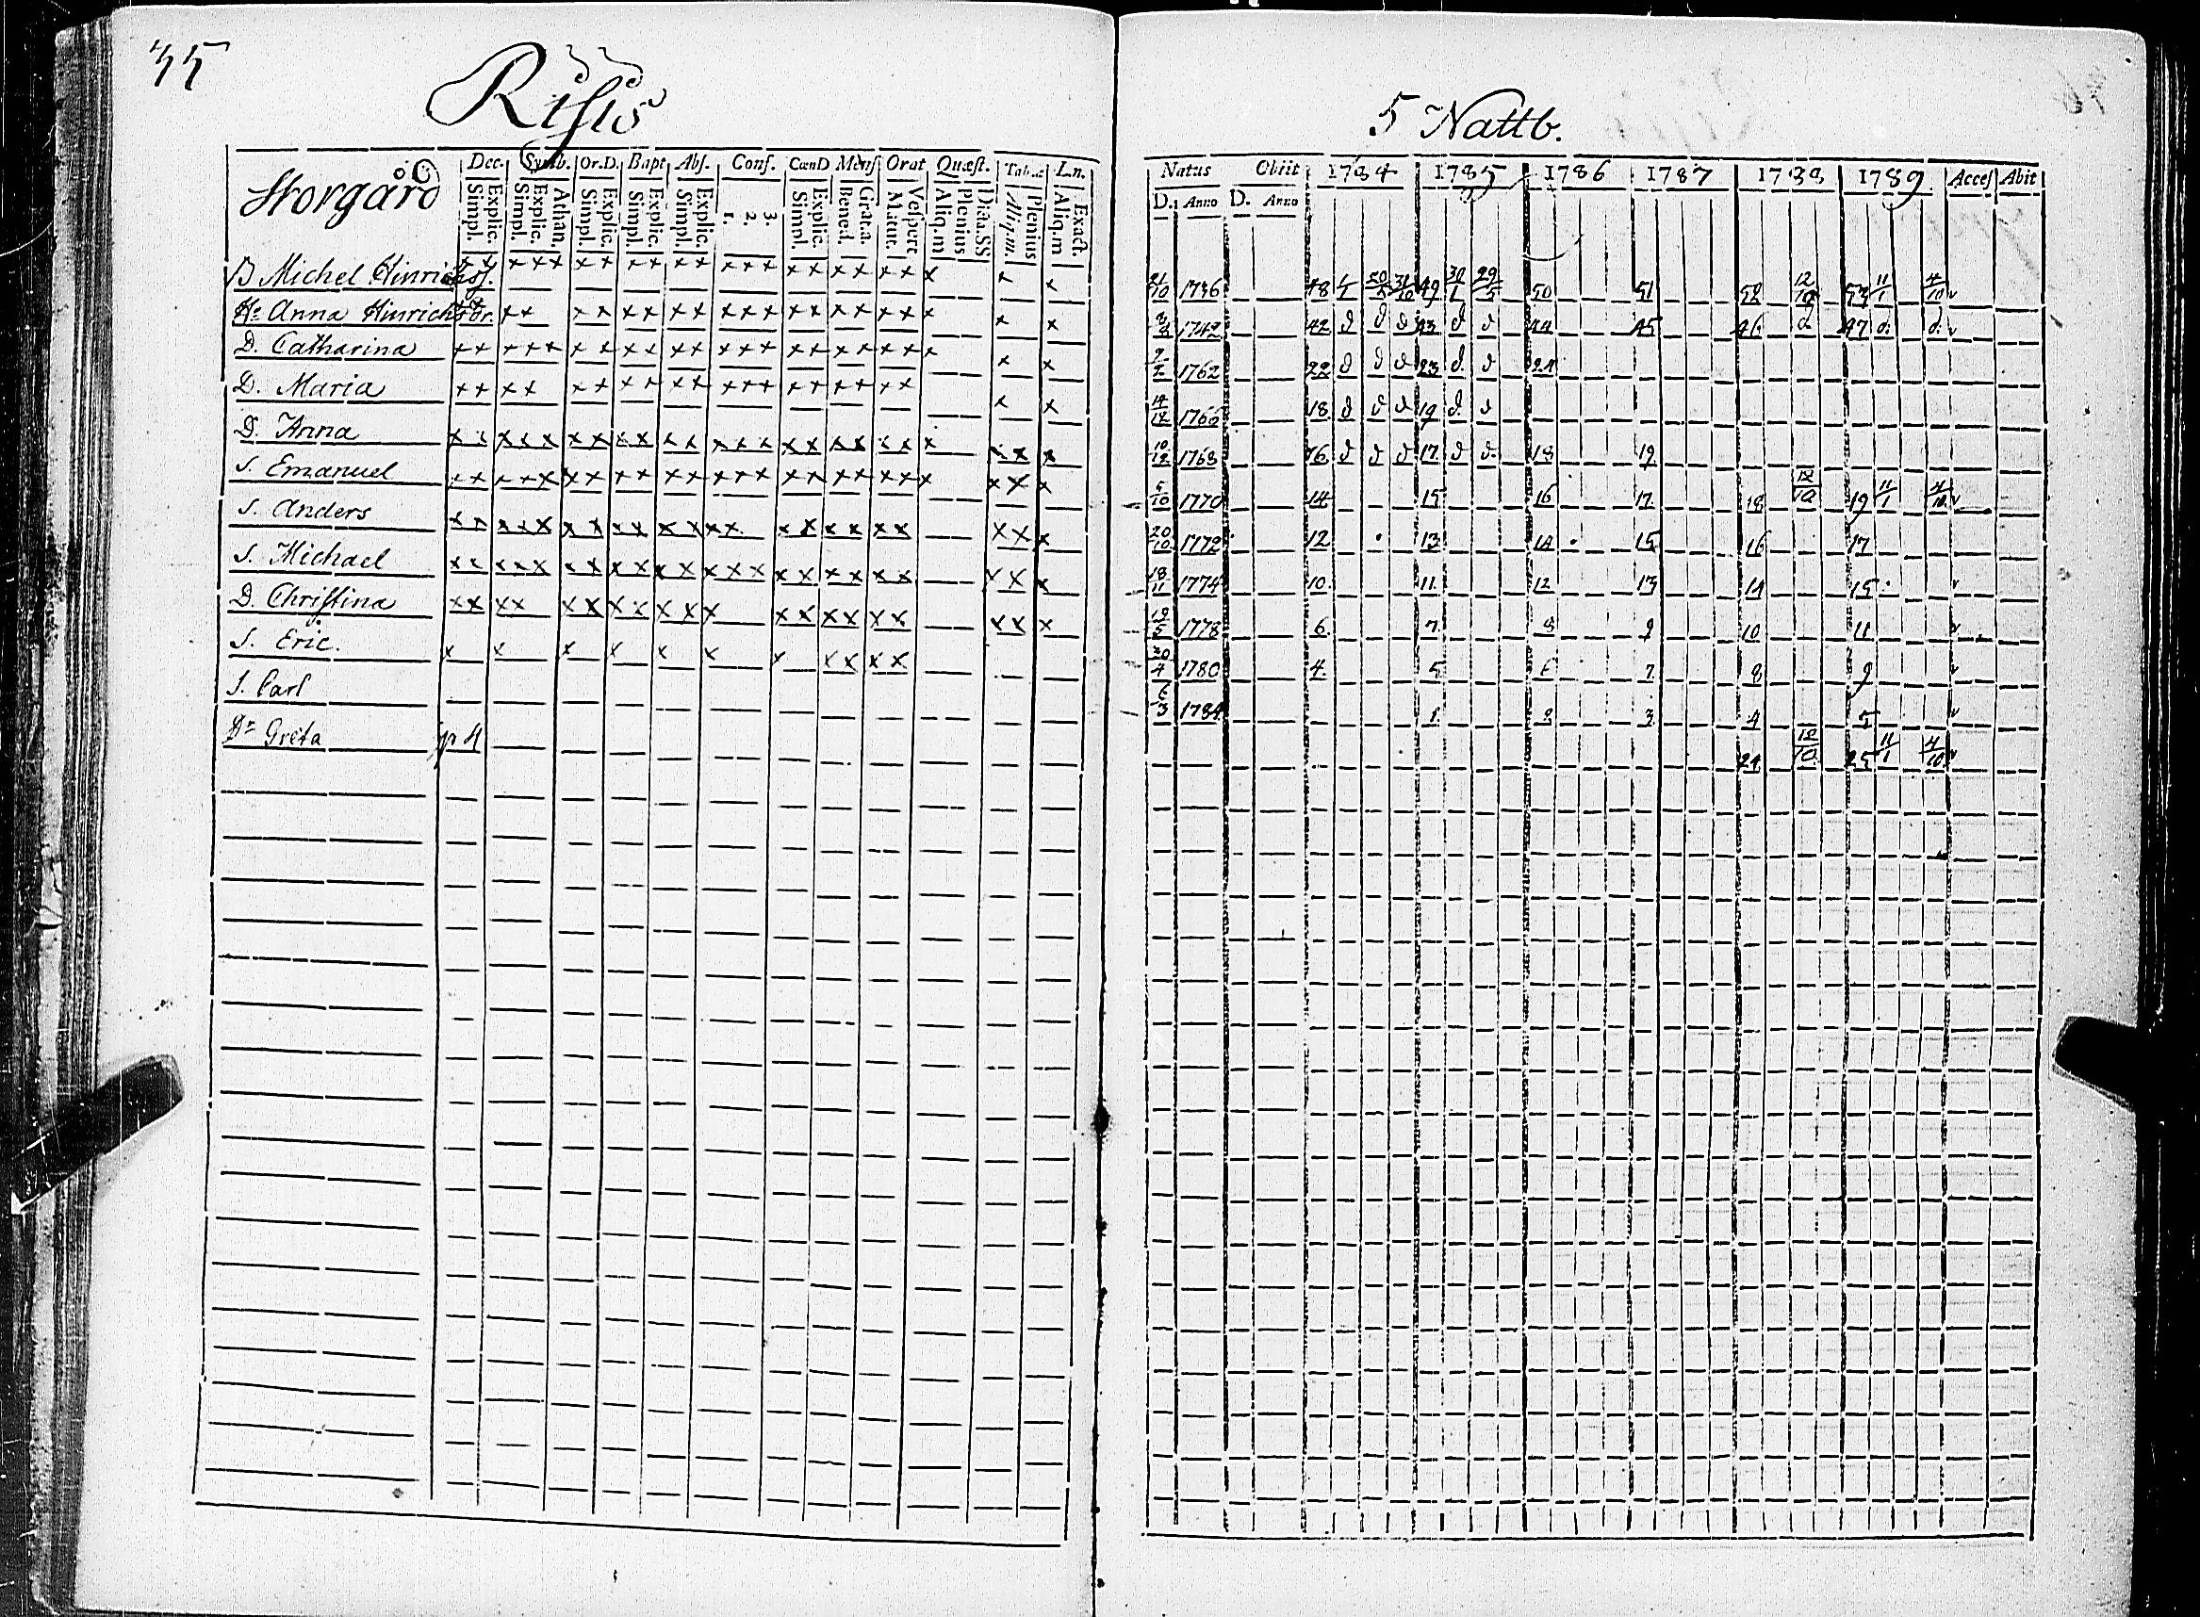 Risis
5 Nattb.
Storgård
Dec. Symb. Or.D. Bapt Abs. Conf. CœnD Mens Orat Quæst. L.n.
Simpl. Explic. Simpl. Explic. Athan. Simpl. Explic. Simpl. Explic. Simpl. Explic. 1. 2. 3. Simpl. Explic. Bened. Grat.a. Matut. Vespert Aliq.m Plenius Dicta.SS Aliq.m. Plenius Aliq.m Exact.
Natus Obiit 1784 1785 1786 1787 1788 1789 Acces Abit
D. Anno D. Anno
B Michel Hinrichss. 21/10 1736 48 49 50 51 52 12/10 53 11/1 4/10
Hu Anna Hinrichsdr. 1742 42 d d d 43 d d 44 45 46 d 47 d. d.
D. Catharina 1762 22 d d d 23 d. d 24
D. Maria 1766 18 d d d 19 d. d
D. Anna 10/12 1768 16 d d d 17 d d. 18 19
S. Emanuel 1770 14 15 16 17 18 12/10 19 11/1 4/10
S. Anders 20/10 1772 12 13 14 15 16 17
S. Michael 18/11 1774 10. 11. 12 13 14 15
D. Christina 12/5 1778 6. 7. 8 9 10 11
S. Eric. 30/4 1780 4. 5 6 7. 8 9
S. Carl 6/3 1784 1 2 3 4 5
Dr Greta p 4 24 12/10 25 11/1 4/10